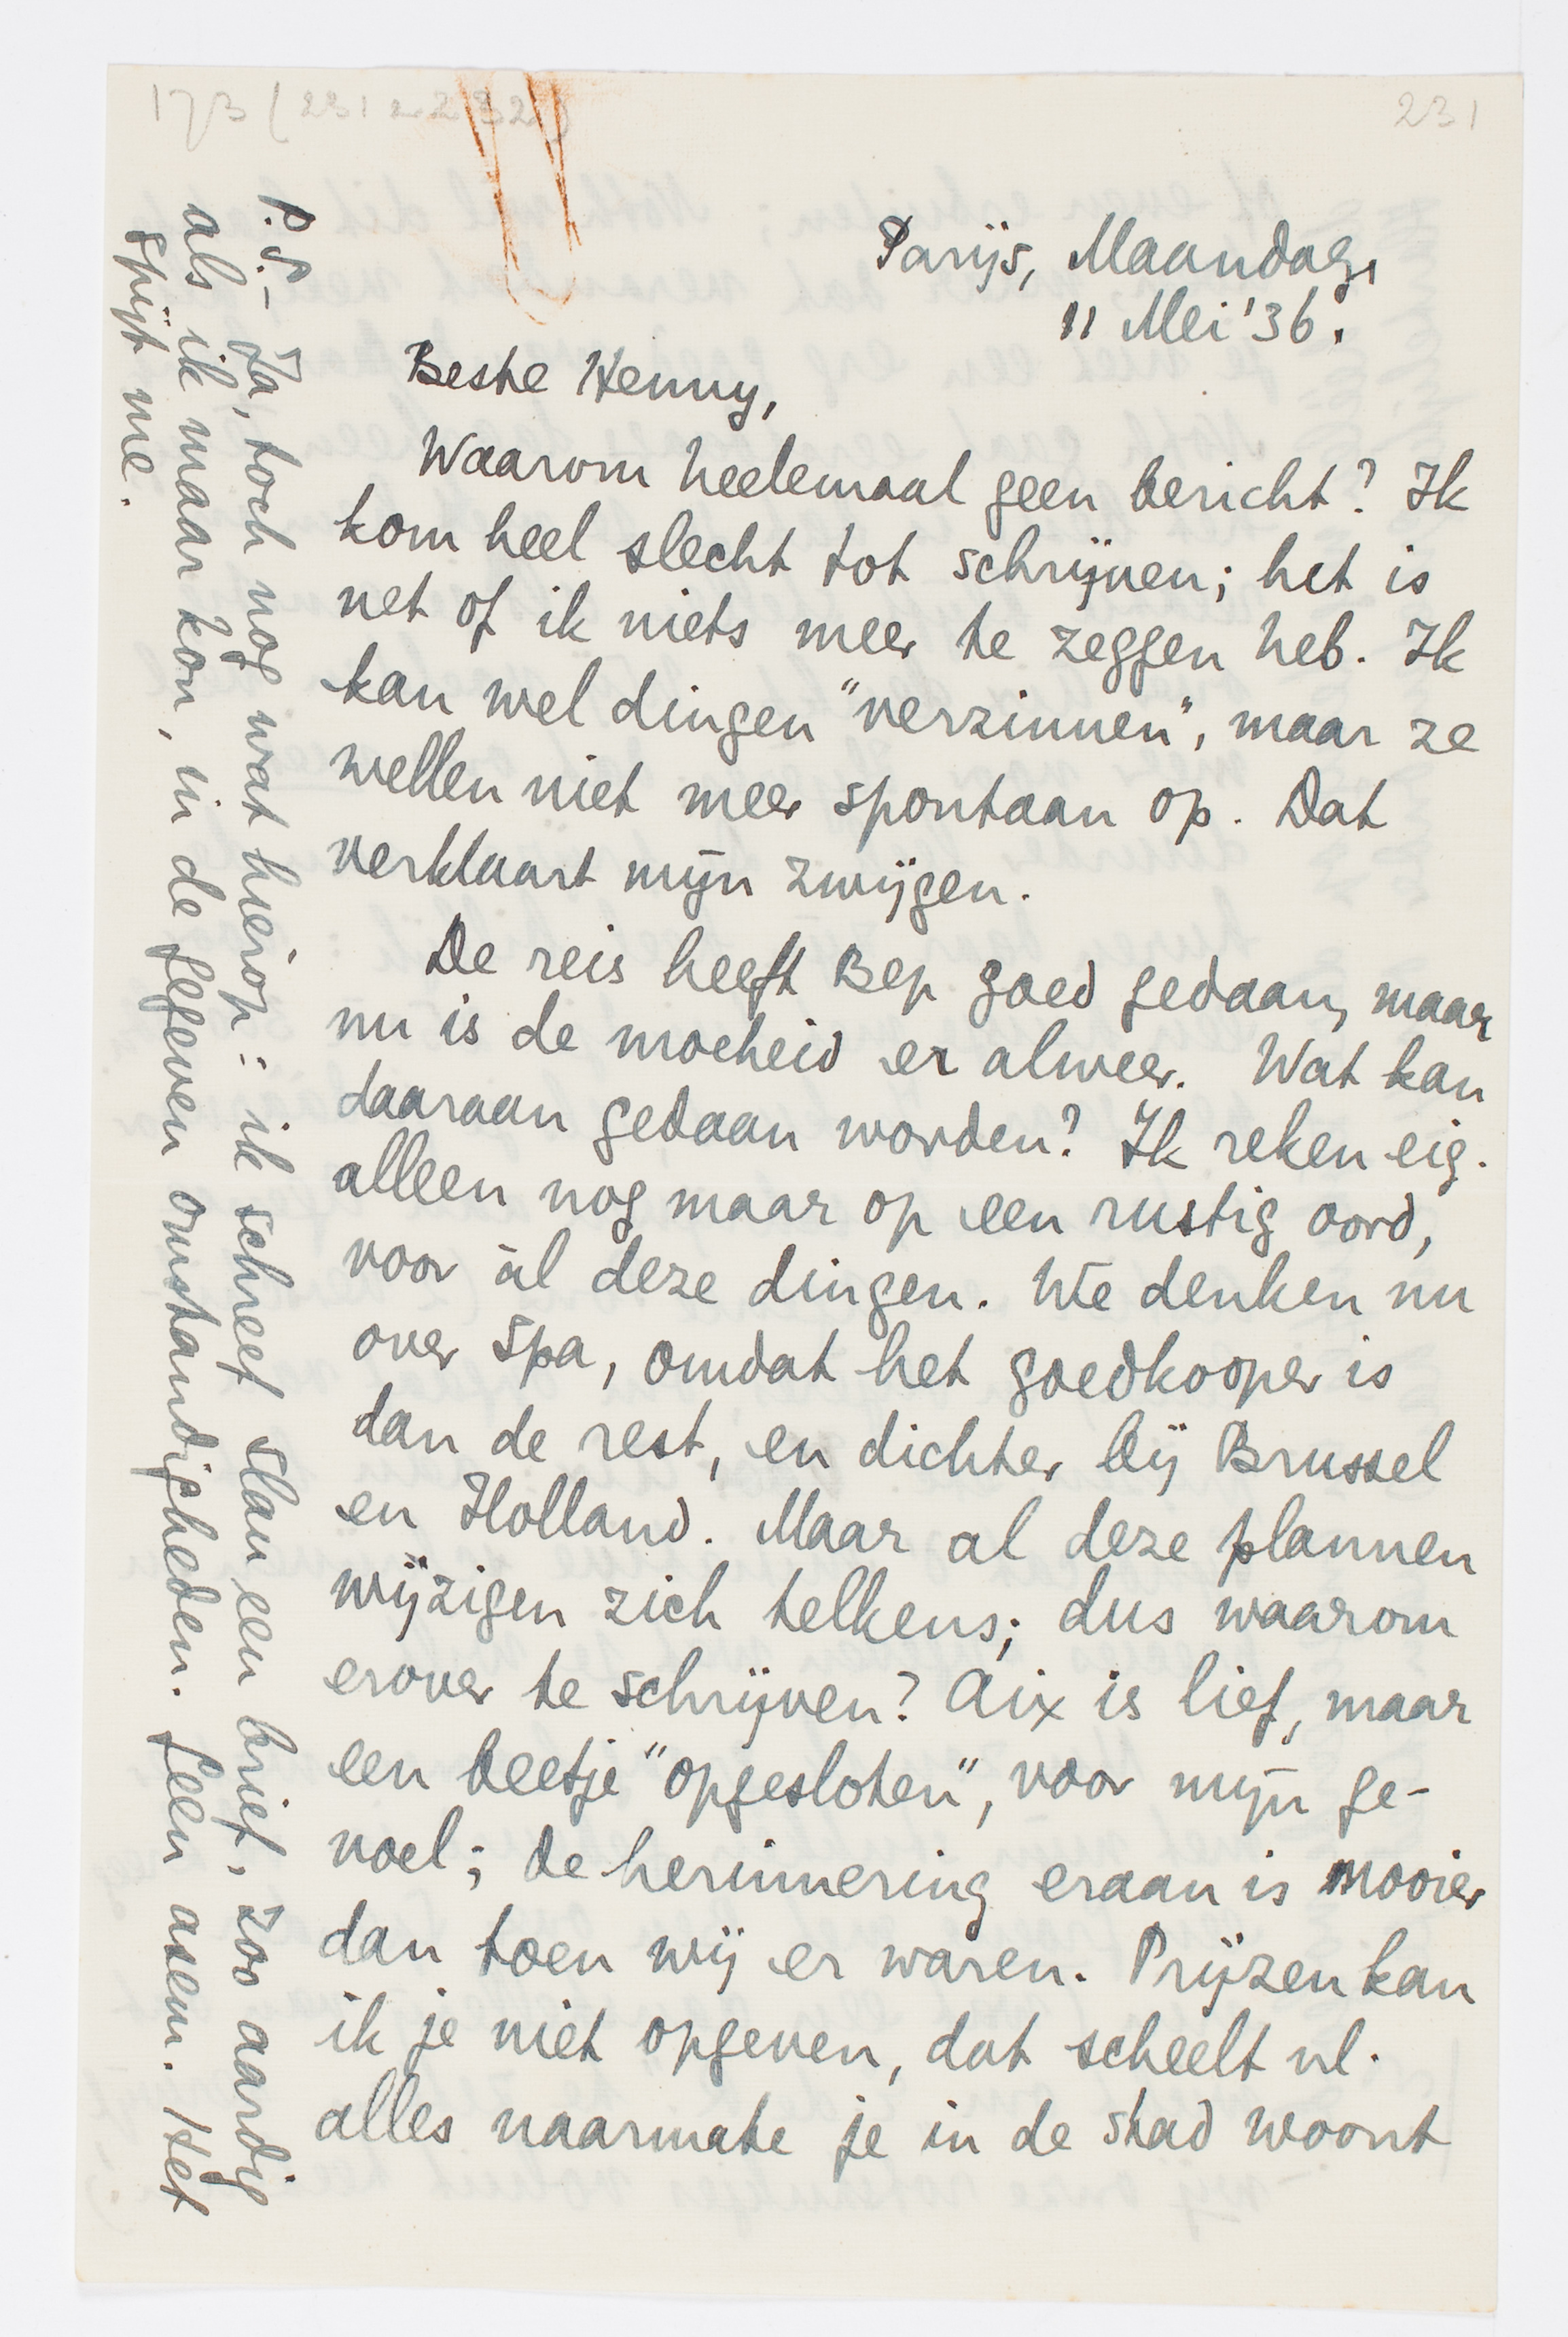 173 (231 232)
231
Parijs, Maandag,
11 Mei '36.
Beste Henny,
Waarom heelemaal geen bericht? Ik
kom heel slecht tot schrijven; het is
net of ik niets meer te zeggen heb. Ik
kan wel dingen "verzinnen", maar ze
wellen niet meer spontaan op. Dat
verklaart mijn zwijgen.
De reis heeft Bep goed gedaan, maar
nu is de moeheid er alweer. Wat kan
daaraan gedaan worden? Ik reken eig.
alleen nog maar op een rustig oord,
voor àl deze dingen. We denken nu
over Spa, omdat het goedkooper is
dan de rest, en dichter bij Brussel
en Holland. Maar al deze plannen
wijzigen zich telkens; dus waarom
erover te schrijven? Aix is lief, maar
een beetje "opgesloten", voor mijn ge-
voel; de herinnering eraan is mooier
dan toen wij er waren. Prijzen kan
ik je niet opgeven, dat scheelt nl.
alles naarmate je in de stad woont
P.S. – Ja, toch nog wat hierop: ik schreef Slau een brief, zoo aardig
als ik maar kon, in de gegeven omstandigheden. Geen asem. Het
spijt me.